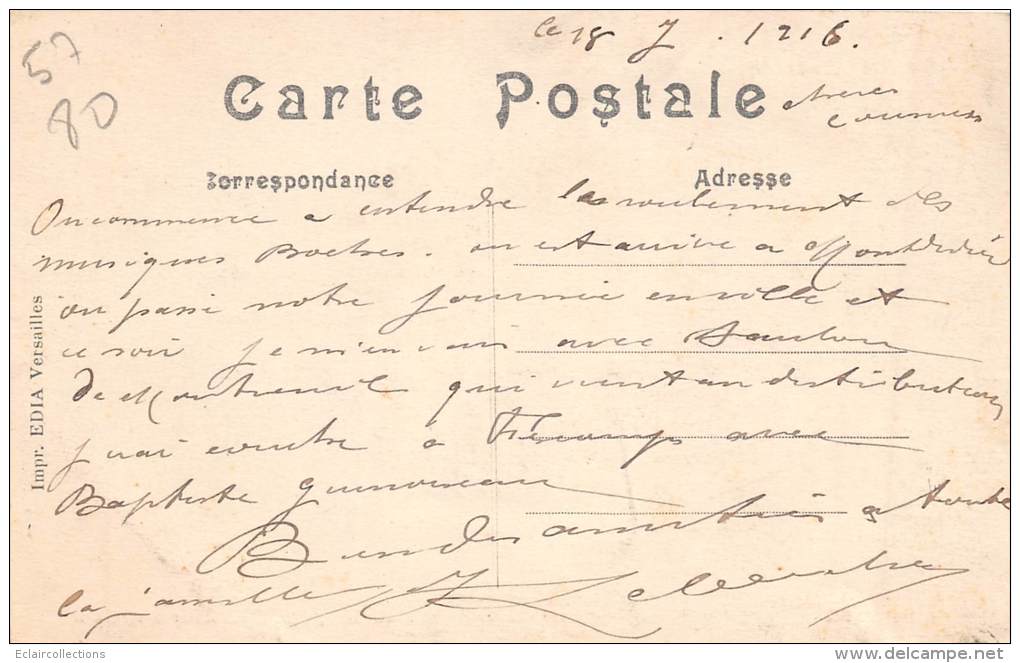 57
80
le 18 7 . 1916.
Carte Postale
cousines
Correspondance
Adresse
On commence a entendre le roulement des
musiques Boches. on est arrivé a Montdidier
on passe notre journée en ville et
ce soir je m'en vais avec
de Montreuil qui vient au distribution
j'irai ensuite a Fécamp avec
Baptiste
Biendes amitiés a toute
la famille
Impr. EDIA Versailles
Eclaircollections
www.delcampe.net